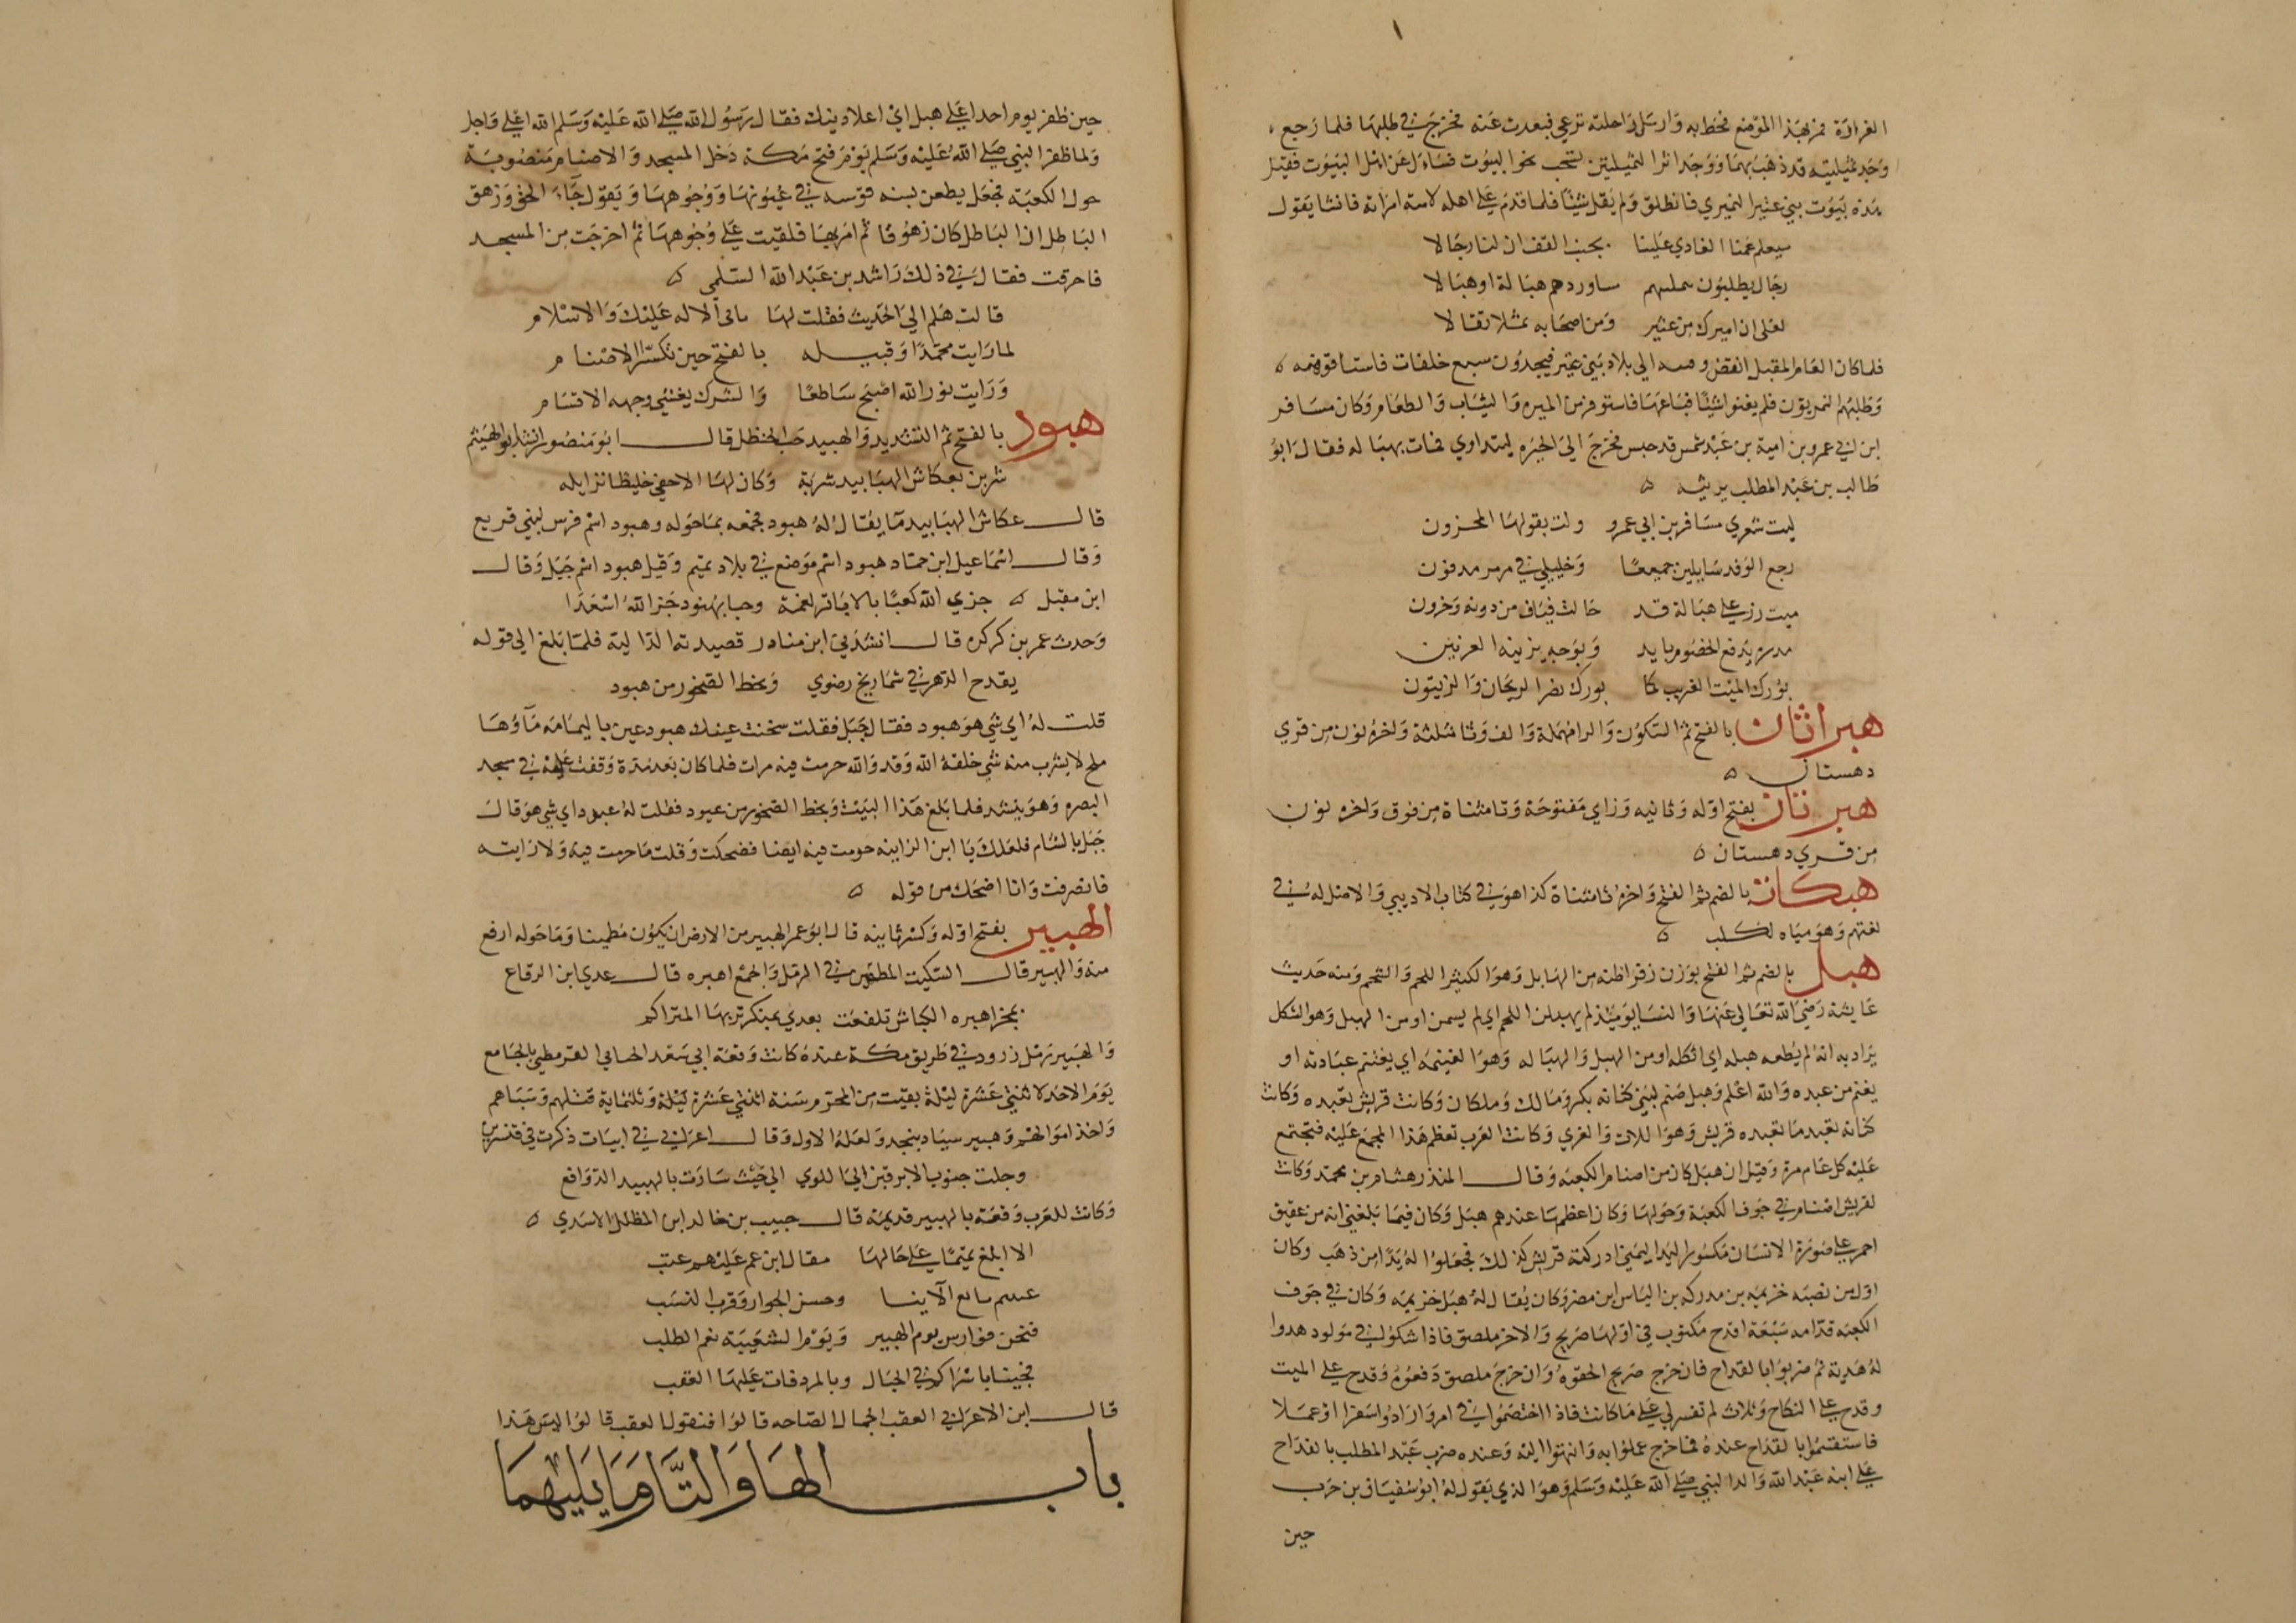 الغرارة فمر بهذا الموضع فحط به وارسل راحلته ترعي فبعدت عنه فخرج في طلبها فلما رجع
وجد ثميلتيه قد ذهب بهما ووجد اثر الثميلتين تسحب نحو البيوت فساءل عن اهل البيوت فقيل
هذه بيوت بني عثير النميري فانطلق ولم يقل شيئا فلما قدم علي اهله لامته امراته فانشا يقول
سيعلم عمنا الغادي علينا بجنب القف ان لنا رجالا
رجال يطلبون ساوردهم هبالة او هبالا
لعلي ان اميرك من عثير ومن اصحابه ثقالا
فلما كان العام المقبل انقض الي بلاد بني عثير فيجدون سبع خلفات فاستاقوهنه
وطلبهم النمريون فلم يغنوا شيئا فباعها فاستوفز من الميره والثياب والطعام وكان مسافر
ابن ابي عمرو بن امية بن عبد شمس قد حبس فخرج الي الحيره ليتداوي فمات بهباله فقال ابو
طالب بن عبد المطلب يرثيه
ليت شعري مسافر بن ابي عمرو وليت يقولها المحزون
رجع الوفد سايلين جميعا وخليلي في مرمر مدفون
ميت رزء علي هبالة قد حالت فياف من دونه وحزون
مدره يدفع الخصوم بايد وبوجه يزينه العرنين
بورك الميت الغريب كما بورك نضر الريحان والزيتون
هبراثان بالفتح ثم السكون والرا مهملة والف وثا مثلثة واخره نون من قري
دهستان
هبرتان بفتح اوله وثانيه وزاي مفتوحة وتا مثناة من فوق واخره نون
من قري دهستان
هبكات بالضم ثم الفتح واخره تا مثناة كذا هو في كتاب الاديبي والاصل له في
لغتهم وهو مياه لكلب
هبل بالضم ثم الفتح بوزن زفر اظنه من الهابل وهو الكثير اللحم والشحم ومنه حديث
عايشة رضي الله تعالي عنها والنسا يوميذ لم يهبلهن اللحم اي لم يسمن او من الهبل وهو الثكل
يراد به انه لم يطعه هبله اي اثكله او من الهبل والهباله وهو الغنيمه اي يغتنم عبادته او
يغنم من عبده والله اعلم وهبل صنم لبني كنانه بكر ومالك وملكان وكانت قريش تعبده وكانت
كنانه تعبد ما تعبده قريش وهو اللات والعزي وكانت العرب تعظم هذا المجمع عليه فتجتمع
عليه كل عام مرة وقيل ان هبل كان من اصنام الكعبه وقال المنذر هشام بن محمد وكانت
لقريش اصنام في جوف الكعبة وحولها وكان اعظمها عندهم هبل وكان فيما بلغني انه من عقيق
احمر علي صورة الانسان مكسور اليد اليمني ادركته قريش كذلك فجعلوا له يدا من ذهب وكان
اول من نصبه خزيمه بن مدركه بن الياس ابن مضر وكان يقال له هبل خزيمه وكان في جوف
الكعبه قدامه سبعة اقدح مكتوب في اولها صريح والاخر ملصق فاذا شكوا في مولود هدوا
له هدية ثم ضربوا بالقداح فان خرج صريح الحقوه وان خرج ملصق دفعوه وقدح علي الميت
وقدح علي النكاح وثلاث لم تفسر لي علي ما كانت فاذا اختصموا في امر وارادوا سفرا او عملا
فاستقسموا بالقداح عنده فما خرج عملوا به وانتهوا اليه وعنده ضرب عبد المطلب بالقداح
علي ابنه عبد الله والد النبي صلي الله عليه وسلم وهو الذي يقول له ابو سفيان بن حرب
حين
حين ظفر يوم احد اعلي هبل اي اعلا دينك فقال رسول الله صلي الله عليه وسلم الله اعلي واجل
ولما ظفر النبي صلي الله عليه وسلم يوم فتح مكة دخل المسجد والاصنام منصوبة
حول الكعبة فجعل يطعن بسنه قوسه في عيونها ووجوهها ويقول جاء الحق وزهق
الباطل ان الباطل كان زهوقا ثم امر بها فلقيت علي وجوهها ثم اخرجت من المسجد
فاحرقت فقال في ذلك راشد بن عبد الله السلمي
قالت هلم الي الحديث فقلت لها يابي الاله عليك والاسلام
لما رايت محمدا وقبيله بالفتح حين تكسر الاصنام
ورايت نور الله اصبح ساطعا والشرك يغشي وجهه الاقتام
هبود بالفتح ثم التشديد والهبيد حب الحنظل قال ابو منصور انشد ابو الهيثم
شربن بعكاش الهبابيد شربة وكان لها الاحفي خليطا تزايله
قال عكاش الهبابيد ما يقال له هبود فجمعه بما حوله وهبود اسم فرس لبني قريع
وقال اسماعيل ابن حماد هبود اسم موضع في بلاد تميم وقيل هبود اسم جبل وقال
ابن مقبل جزي الله كعبا بالاباتر نعمة وحيا بهبود جزا الله اسعدا
وحدث عمر بن كركره قال انشدني ابن مناذر قصيدته الدالية فلما بلغ الي قوله
يقدح الدهر في شماريخ رضوي ويحط الصخور من هبود
قلت له اي شي هو هبود فقال جبل فقلت سخنت عينك هبود عين باليمامه ماوها
ملح لا يشرب منه شي خلقه الله وقد والله خرجت فيه مرات فلما كان بعد مدة وقفت عليه في مسجد
البصره وهو ينشد فلما بلغ هذا البيت ويحط الصخور من عبود فقلت له عبود اي شي هو قال
جبل بالشام فلعلك يا ابن الزانيه خريت فيه ايضا فضحكت وقلت ما خريت فيه ولا رايته
فانصرفت وانا اضحك من قوله
الهبير بفتح اوله وكسر ثانيه قال ابو عمر الهبير من الارض ان يكون مطمينا وما حوله ارفع
منه والهبير قال السكيت المطمين في الرمل والجمع اهبره قال عدي ابن الرقاع
بمجر اهبره الكباش تلفعت بعدي بمنكر تربها المتراكم
والهبير رمل زرود في طريق مكة عنده كانت وقعة ابي سعد الجنابي القرمطي بالجامع
يوم الاحد لاثنتي عشرة ليلة بقيت من المحرم سنة اثنتي عشرة ليلة وثلثماية قتلهم وسباهم
واخذ اموالهم وهبير سيار بنجد ولعله الاول وقال اعرابي في ابيات ذكرت في قنسرين
وحلت جنوب الابرقين الي اللوي الي حيث سارت بالهبير الدوافع
وكانت للعرب وقعة بالهبير قديمة قال حبيب بن خالد ابن المظلل الاسدي
الا ابلغ تميما علي حالها مقال ابن عم عليهم عتب
وحسن الجوار وقرب النسب
فنحن فوارس يوم الهبير ويوم الشعيبة نعم الطلب
فجينا باسراكم في الحبال وبالمردفات عليها العقب
قال ابن الاعرابي العقب الجمال الصباحه قالوا فنقول العقب قالوا ليس هذا
باب الها والتا وما يليهما